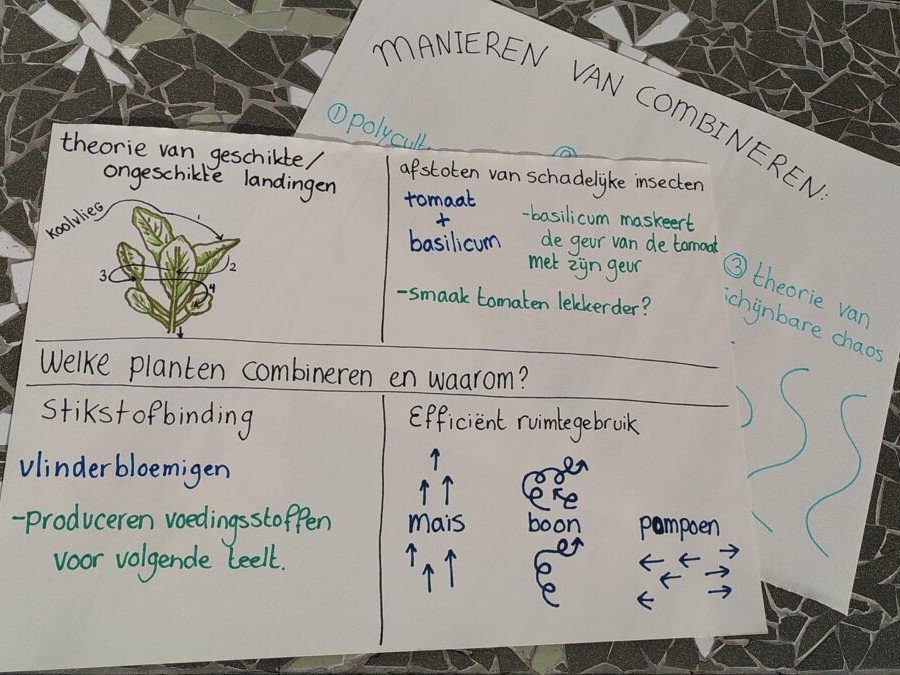 MANIEREN VAN COMBINEREN:
① polycult
③ theorie van
schijnbare chaos
theorie van geschikte/
ongeschikte landingen
koolvlieg
1
2
3
4
afstoten van schadelijke insecten
tomaat
+
basilicum
-basilicum maskeert
de geur van de tomaat
met zijn geur
-smaak tomaten lekkerder?
Welke planten combineren en waarom?
Stikstofbinding
vlinderbloemigen
-produceren voedingsstoffen
voor volgende teelt.
Efficiënt ruimtegebruik
mais boon pompoen